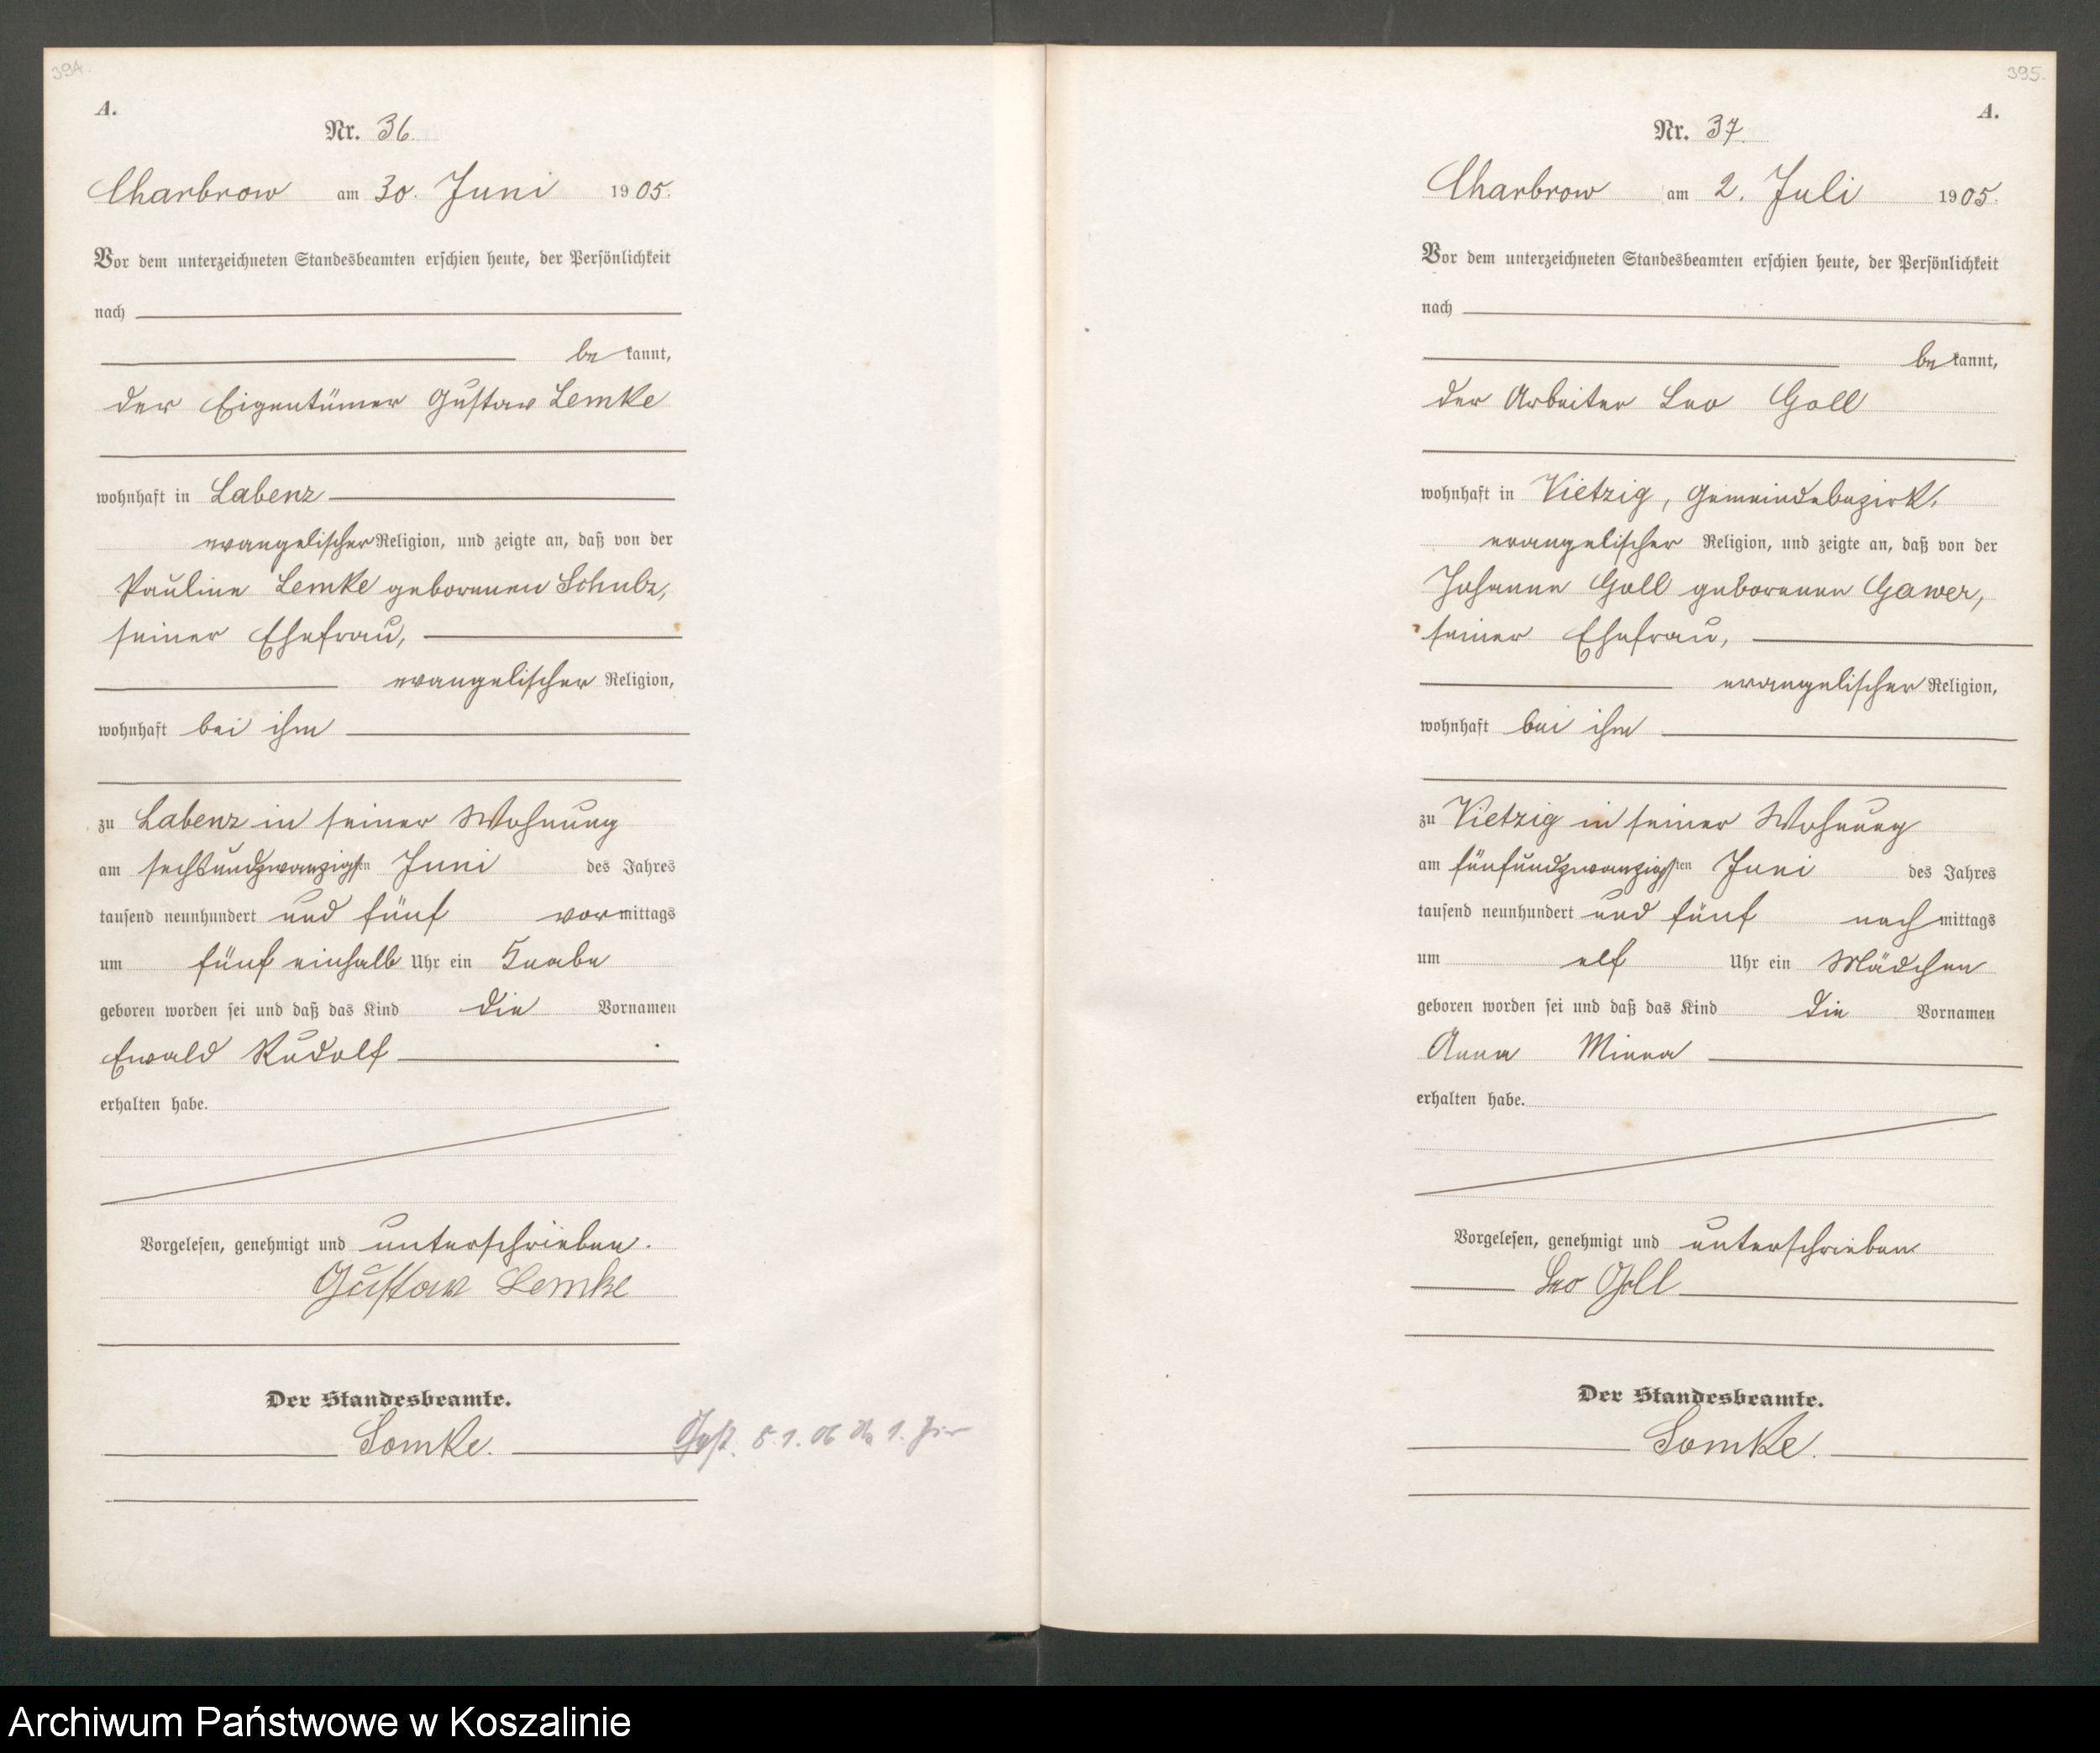 394.
A.
Nr. 36.
Charbrow am 30. Juni 1905.
Vor dem unterzeichneten Standesbeamten erschien heute, der Persönlichkeit
nach
bekannt,
der Eigentümer Gustav Lemke
wohnhaft in Labenz
evangelischer Religion, und zeigte an, daß von der
Pauline Lemke geborenen Schulz,
seiner Ehefrau,
evangelischer Religion,
wohnhaft bei ihm
zu Labenz in seiner Wohnung
am sechsundzwanzigsten Juni des Jahres
tausend neunhundert und fünf vormittags
um fünf einhalb Uhr ein Knabe
geboren worden sei und daß das Kind die Vornamen
Ewald Rudolf
erhalten habe.
Vorgelesen, genehmigt und unterschrieben.
Gustav Lemke
Der Standesbeamte.
Lomke.
5.1.06 1.
395.
A.
Nr. 37.
Charbrow am 2. Juli 1905.
Vor dem unterzeichneten Standesbeamten erschien heute, der Persönlichkeit
nach
bekannt,
der Arbeiter Leo Goll
wohnhaft in Vietzig, Gemeindebezirk,
evangelischer Religion, und zeigte an, daß von der
Johanne Goll geborenen Gawer,
seiner Ehefrau,
evangelischer Religion,
wohnhaft bei ihm
zu Vietzig in seiner Wohnung
am fünfundzwanzigsten Juni des Jahres
tausend neunhundert und fünf nachmittags
um elf Uhr ein Mädchen
geboren worden sei und daß das Kind die Vornamen
Anna Minna
erhalten habe.
Vorgelesen, genehmigt und unterschrieben
Leo Goll
Der Standesbeamte.
Lomke.
Archiwum Państwowe w Koszalinie